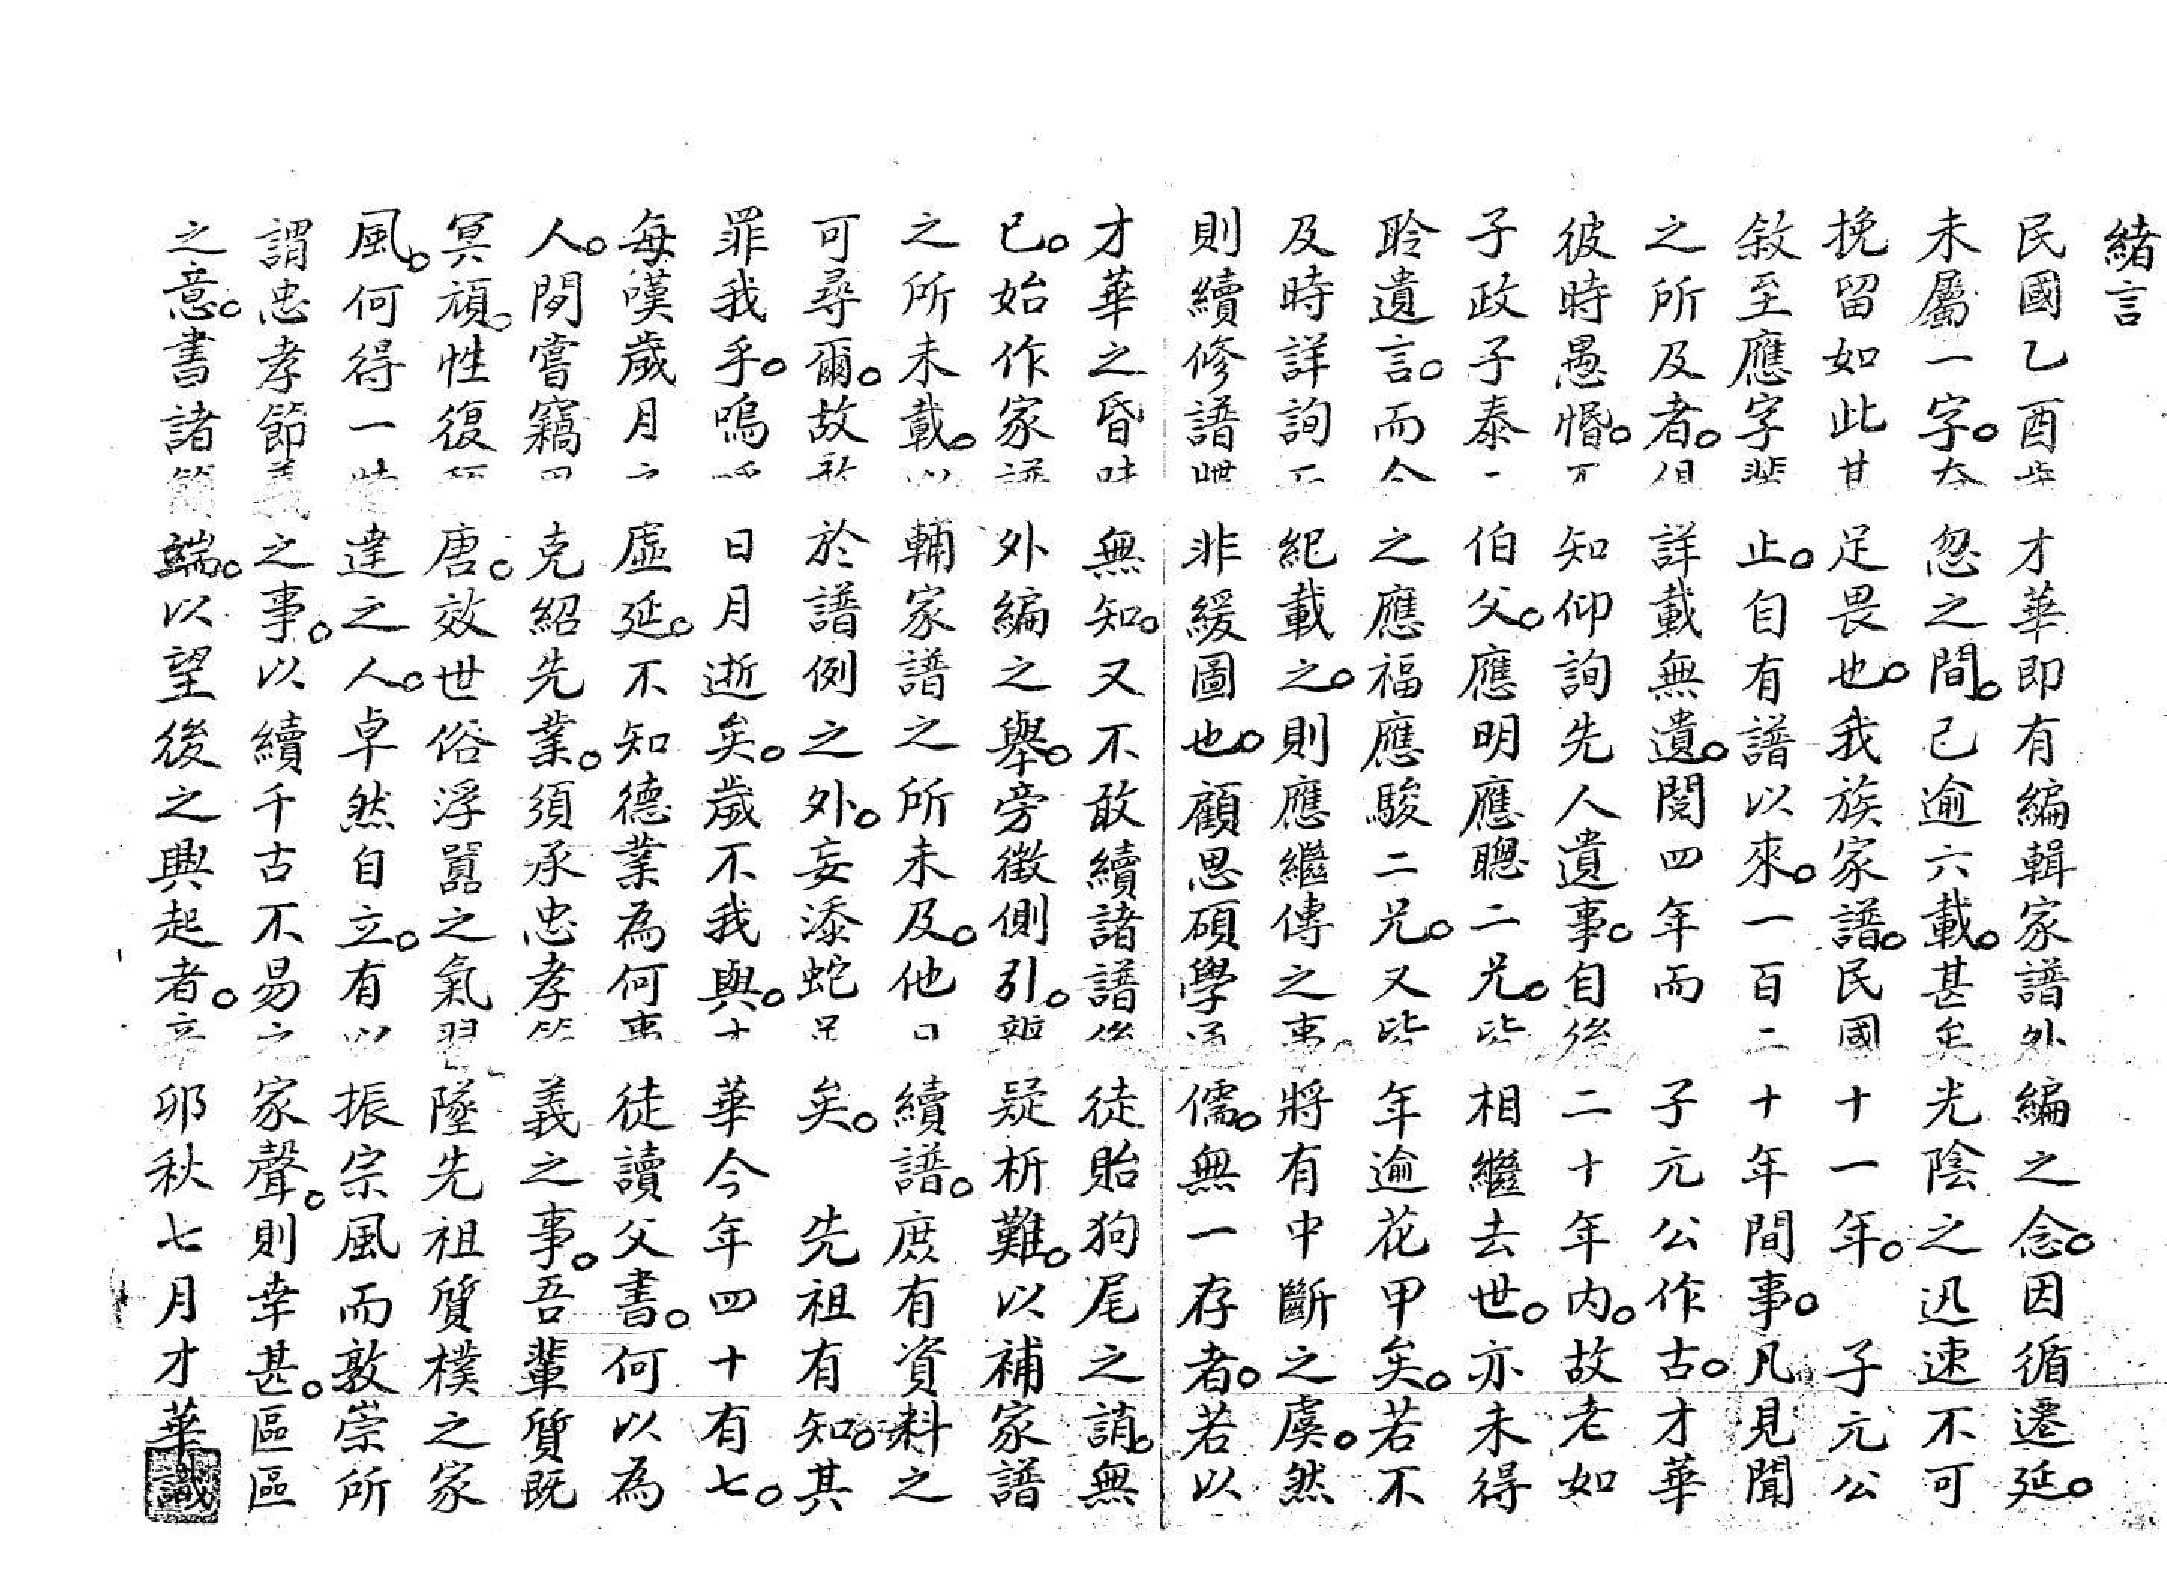 緒言
民國乙酉才華即有編輯家譜外編之念。因循遷延。
未屬一字。忽之間。已逾六載。甚矣光陰之迅速不可
挽留如此足畏也。我族家譜。民國十一年。子元公
敘至應字止。自有譜以來。一百二十年間事。凡見聞
之所及者。詳載無遺。閱四年而子元公作古。才華
彼時愚惛。知仰詢先人遺事。自後二十年內。故老如
子政子泰伯父。應明應聰二兄。相繼去世。亦未得
聆遺言。而今之應福應駿二兄。又皆年逾花甲矣。若不
及時詳詢紀載之。則應繼傳之事。將有中斷之虞。然
則續修譜非緩圖也。顧思碩學儒。無一存者。若以
才華之昏無知。又不敢續諸譜後徒貽狗尾之誚。無
已。始作家譜外編之舉。旁徵側引。疑析難。以補家譜
之所未載。以輔家譜之所未及。他日續譜。庶有資料之
可尋爾。故於譜例之外。妄添蛇足矣。先祖有知。其
罪我乎。嗚呼日月逝矣。歲不我與。才華今年四十有七。
每嘆歲月之虛延。不知德業為何事徒讀父書。何以為
人。間嘗竊克紹先業。須承忠孝節義之事。吾輩質既
冥頑。性復唐。效世俗浮囂之氣習墜先祖質樸之家
風。何得一達之人。卓然自立。有以振宗風而敦崇所
謂忠孝節義之事。以續千古不易之家聲。則幸甚。區區
之意。書諸簡端。以望後之興起者。辛卯秋七月才華識